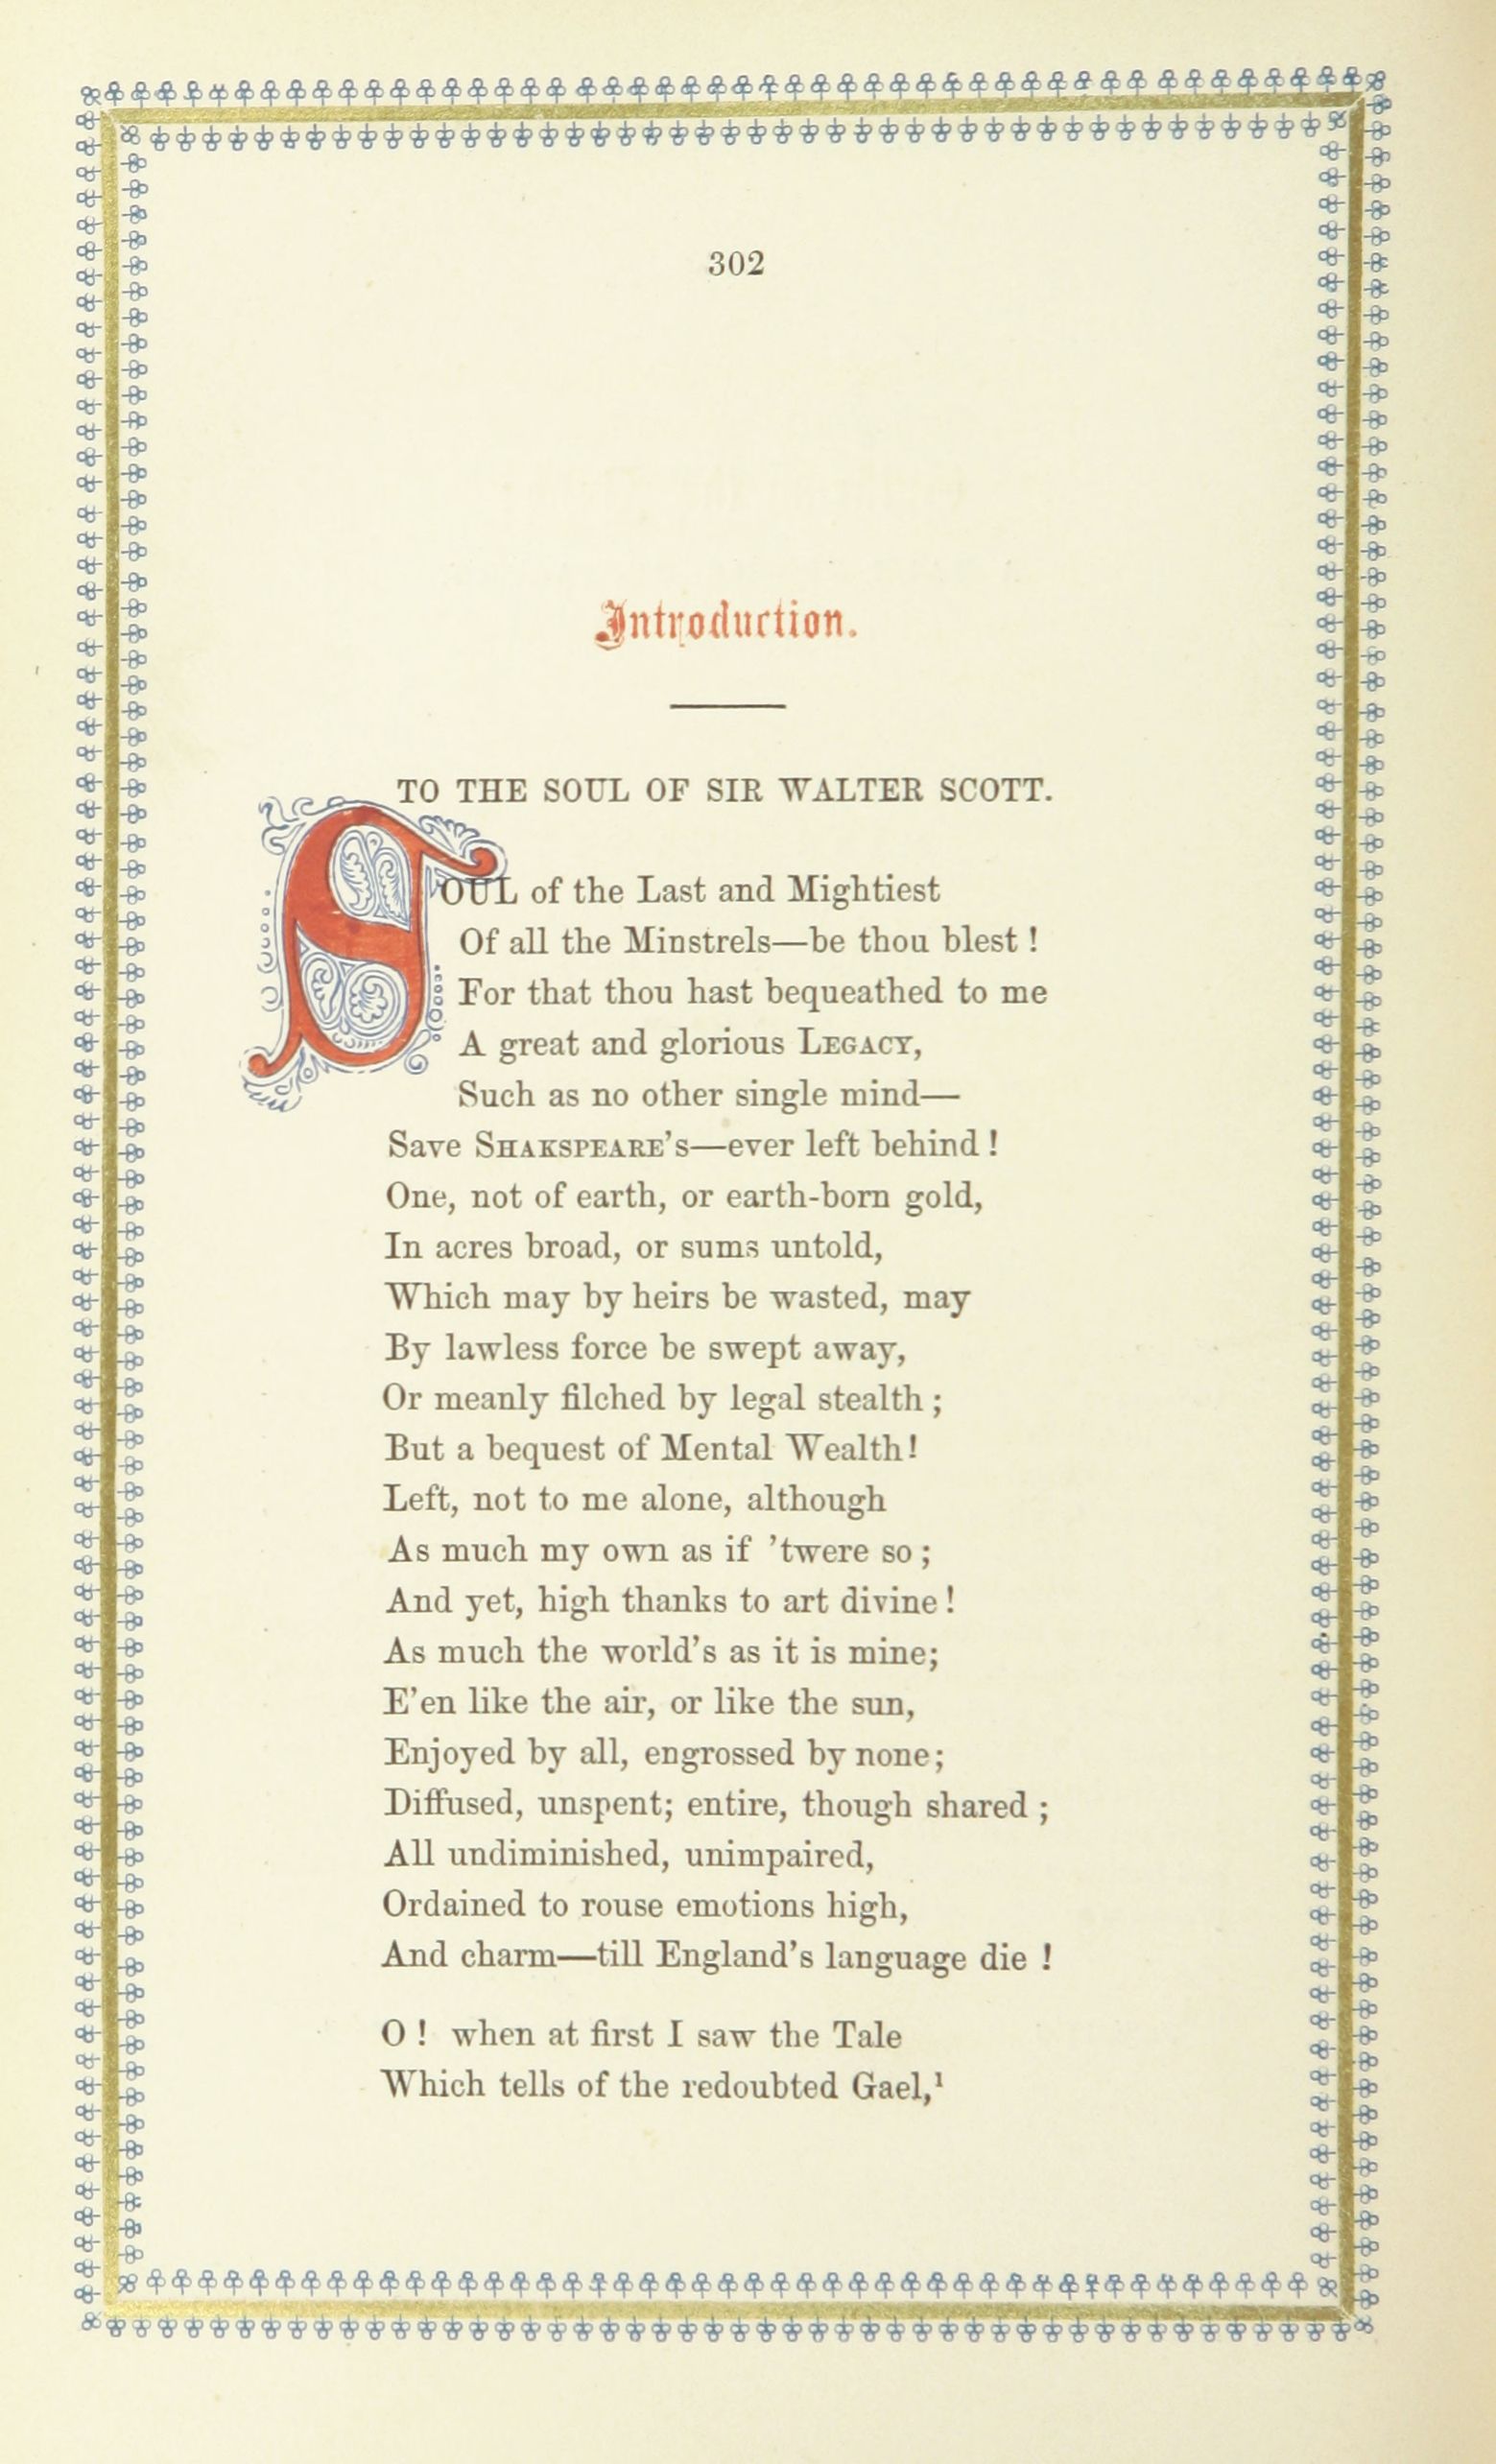 302
Introduction.
TO THE SOUL OF SIR WALTER SCOTT.
SOUL of the Last and Mightiest
Of all the Minstrels—be thou blest !
For that thou hast bequeathed to me
A great and glorious LEGACY,
Such as no other single mind—
Save SHAKSPEARE's—ever left behind !
One, not of earth, or earth-born gold,
In acres broad, or sums untold,
Which may by heirs be wasted, may
By lawless force be swept away,
Or meanly filched by legal stealth ;
But a bequest of Mental Wealth!
Left, not to me alone, although
As much my own as if ’twere so ;
And yet, high thanks to art divine !
As much the world’s as it is mine;
E’en like the air, or like the sun,
Enjoyed by all, engrossed by none;
Diffused, unspent; entire, though shared ;
All undiminished, unimpaired,
Ordained to rouse emotions high,
And charm—till England’s language die !
O ! when at first I saw the Tale
Which tells of the redoubted Gael,¹